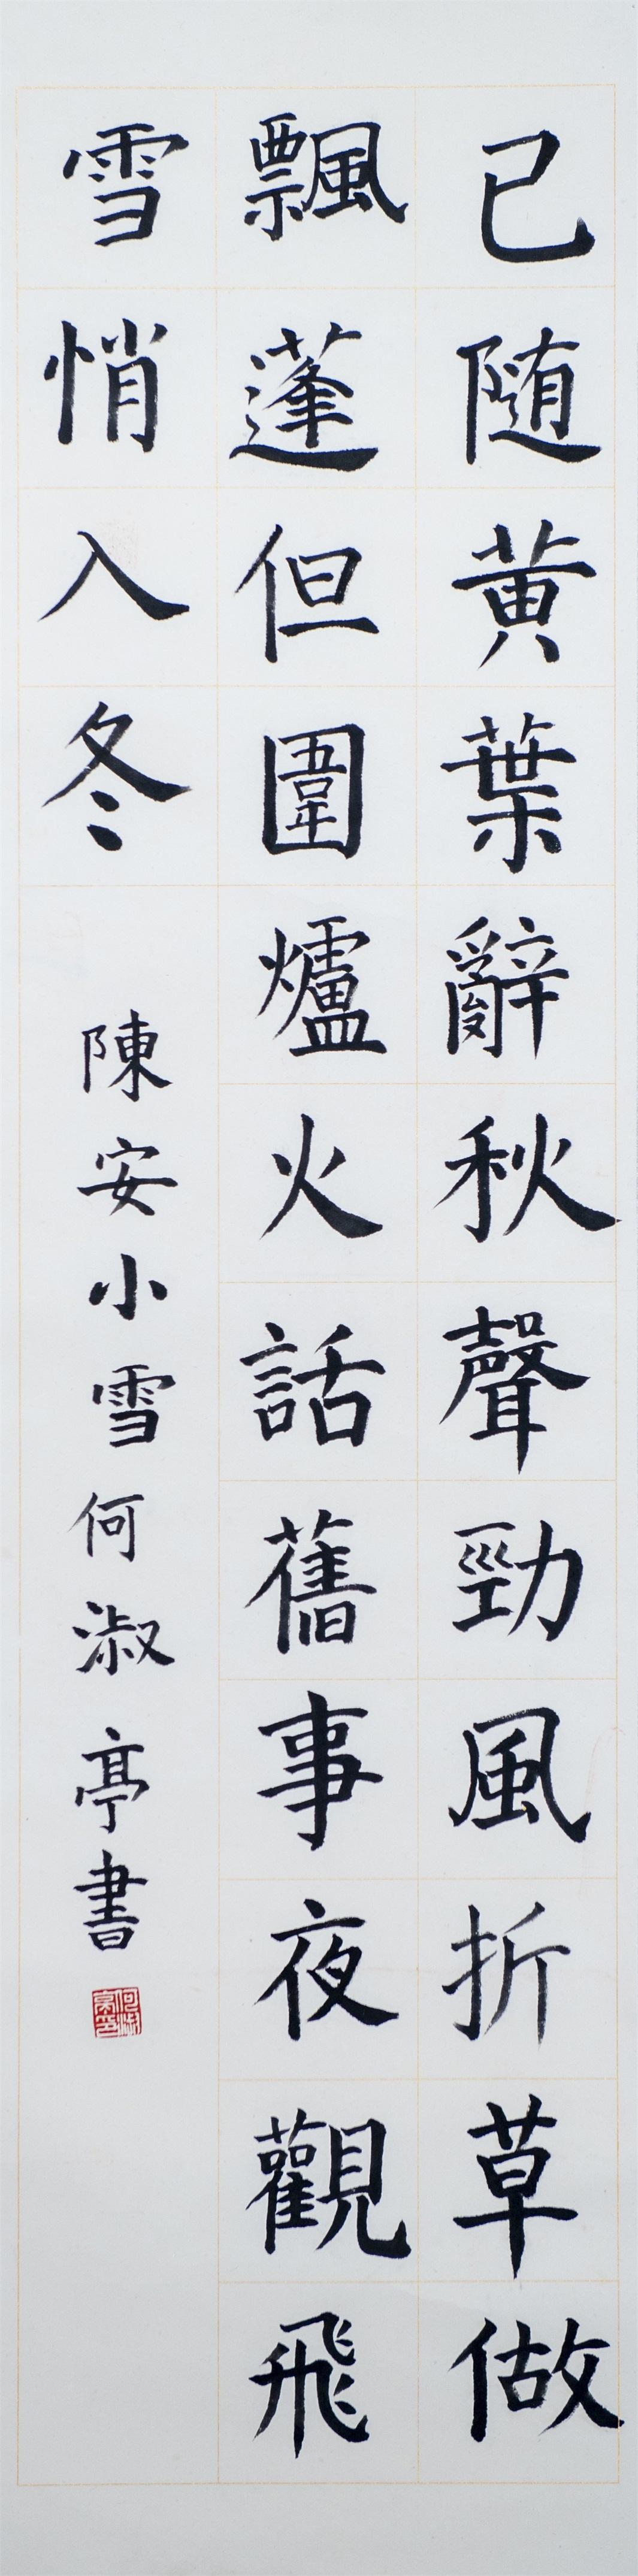 已随黄葉辭秋聲勁風折草做
飄蓬但圍爐火話舊事夜觀飛
雪悄入冬
陳安小雪何淑亭書
何淑亭印